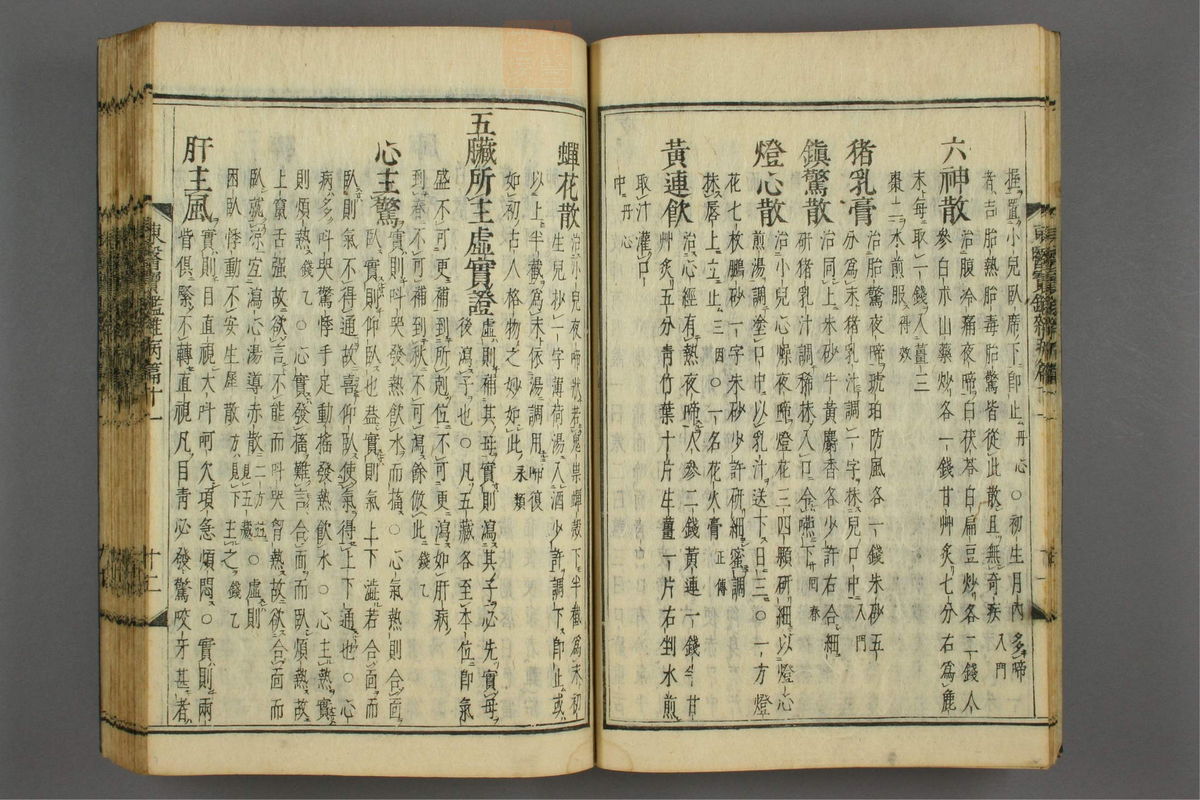 握置小兒臥席下卽止丹心○初生月內多啼
者吉胎熱胎毒胎驚皆從此散且無奇疾入門
六神散
治腹冷痛夜啼白茯苓白扁豆炒各二錢人
參白朮山藥炒各一錢甘艸炙七分右爲麁
末每取一錢入薑二
棗二水煎服得效
猪乳膏
治胎驚夜啼琥珀防風各一錢朱砂五
分爲末猪乳汁調一字抹兒口中入門
鎭驚散
治同上朱砂牛黃麝香各少許右合細
硏猪乳汁調稀抹入口令嚥下回春
燈心散
治小兒心燥夜啼燈花三四顆硏細以燈心
煎湯調塗口中以乳汁送下日三○一方燈
花七枚鵬砂一字朱砂少許硏細蜜調
抹唇上立止三因○一名花火膏正傳
黃連飮
治心經有熱夜啼人參二錢黃連一錢半甘
艸炙五分靑竹葉十片生薑一片右剉水煎
取汁灌口
中丹心
蟬花散
治小兒夜啼狀若鬼祟蟬殼下半截爲末初
生兒抄一字薄荷湯入酒少許調下卽止或
以上半截爲末依湯調用卽復
如初古人格物之妙如此永類
五臟所主虛實證
虛則補其母實則瀉其子必先實母
後瀉子也○凡五臟各至本位卽氣
盛不可更補到所剋位不可更瀉如肝病
到春不可補到秋不可瀉餘倣此錢乙
心主驚
實則叫哭發熱飮水而搐○心氣熱則合面
臥實則仰臥也蓋實則氣上下澁若合面而
臥則氣不得通故喜仰臥使氣得上下通也○心
病多叫哭驚悸手足動搖發熱飮水○心主熱實
則煩熱錢乙○心實發搐難言合面而臥煩熱故
上竄舌强故欲言不能而叫哭胷熱故欲合面而
臥就凉宜瀉心湯導赤散二方並見五藏○虛則
困臥悸動不安生犀散方見下主之錢乙
肝主風
實則目直視大叫呵欠項急煩悶○實則兩
眥俱緊不轉直視凡目靑必發驚咬牙甚者
東醫寶鑑雜病篇十一
十二